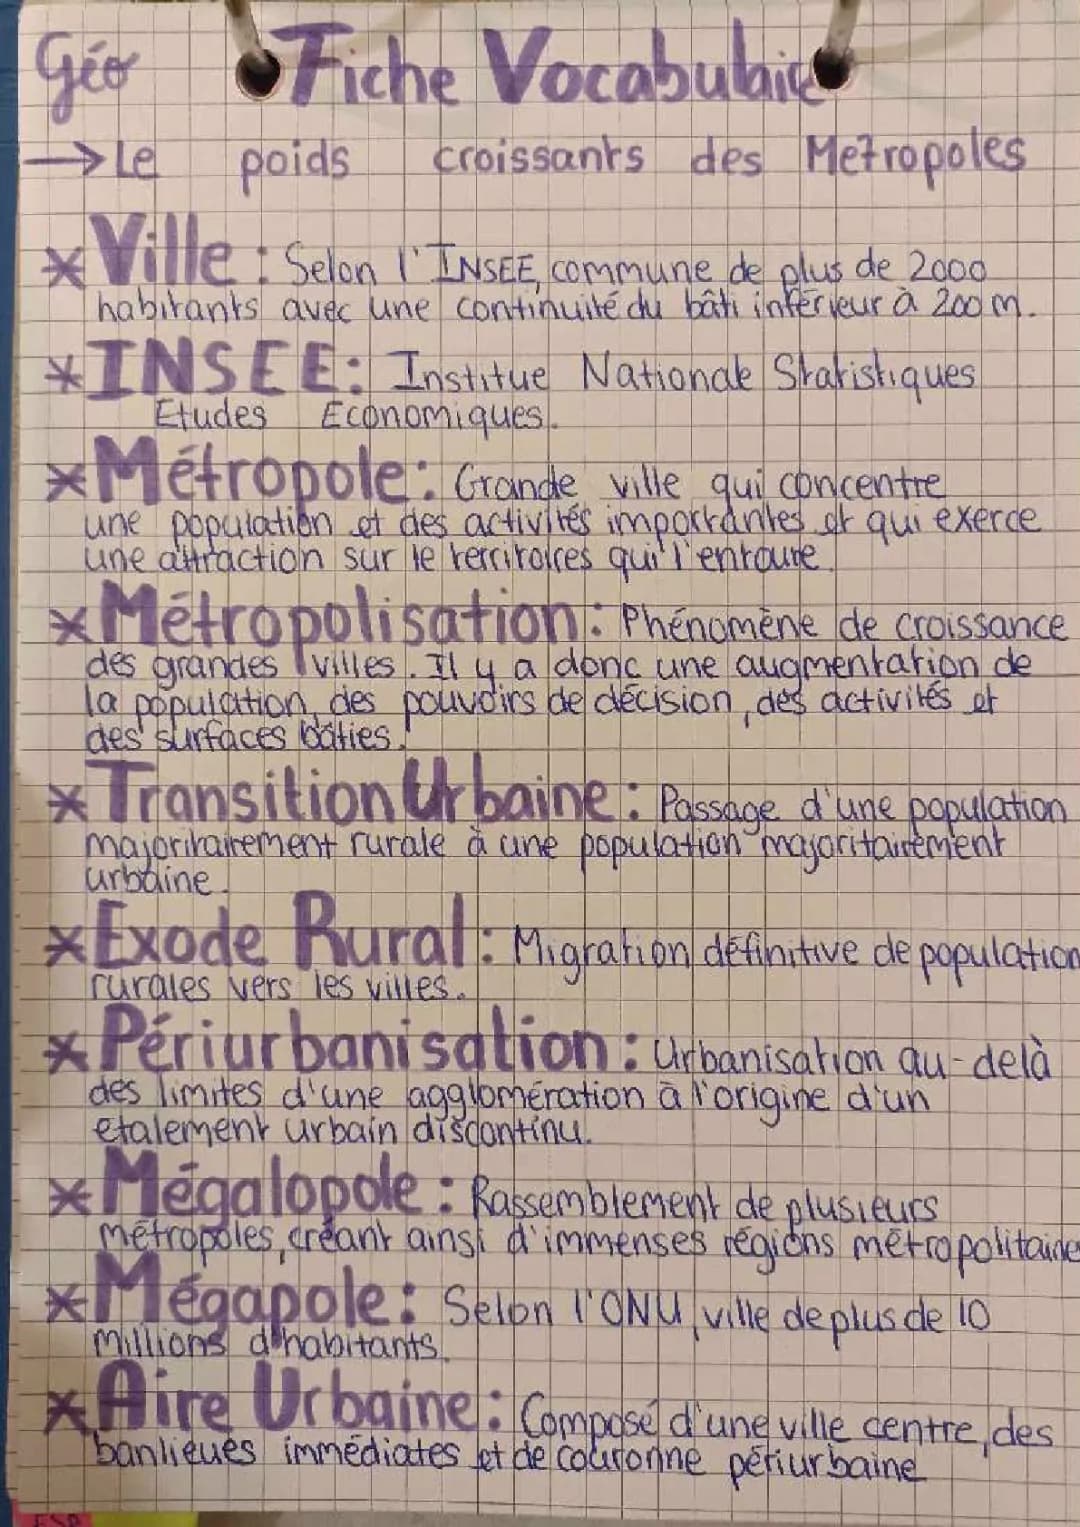 Géo Fiche Vocabulaire
→ Le poids croissants des Metropoles
* Ville : Selon l'INSEE, commune de plus de 2000
habitants avec une continuité du bâti inférieur à 200 m.
* INSEE : Institue Nationale Statistiques
Etudes Economiques.
* Métropole : Grande ville qui concentre
une population et des activités importantes et qui exerce
une attraction sur le territoires qui l'entoure.
* Métropolisation : Phénomène de croissance
des grandes villes. Il y a donc une augmentation de
la population, des pouvoirs de décision, des activités et
des surfaces bâties.
* Transition Urbaine : Passage d'une population
majoritairement rurale à une population majoritairement
urbaine.
* Exode Rural : Migration définitive de population
rurales vers les villes.
* Périurbanisation : Urbanisation au-delà
des limites d'une agglomération à l'origine d'un
etalement urbain discontinu.
* Mégalopole : Rassemblement de plusieurs
métropoles, créant ainsi d'immenses régions métropolitaine
* Mégapole : Selon l'ONU, ville de plus de 10
Millions d'habitants.
* Aire Urbaine : Composé d'une ville centre, des
banlieues immédiates et de couronne périurbaine
ESP